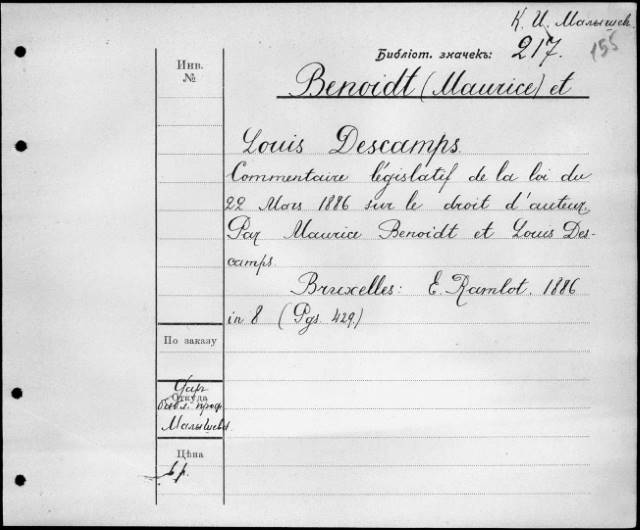 К. И. Малышев.
Библіот. значекъ: 217. 155
Инв.
№
Benoidt (Maurice) et
Louis Descamps.
Commentaire législatif de la loi du
22 Mars 1886 sur le droit d'auteur.
Par Maurice Benoidt et Louis Des-
camps.
Bruxelles: E. Ramlot. 1886
in 8 (Pgs 429.)
По заказу
Откуда
Дар
библ. проф.
Малышева.
Цѣна